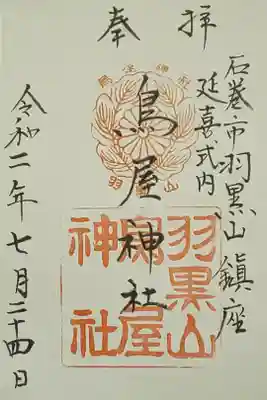 奉拝
石巻市羽黒山鎮座
延喜式内
鳥屋神社
羽黒山
鳥屋
神社
令和二年七月二十四日